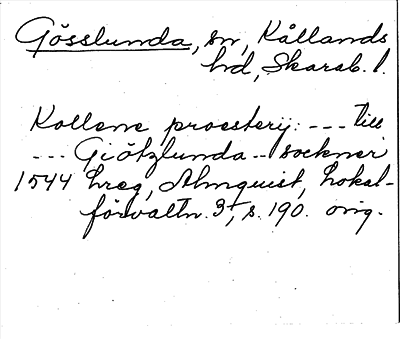 Gösslunda, sn, Kållands
hd, Skarab. l.
Kollene proesterij: --- till
--- Giötzlunda -- sockner
1544 hreg, Almquist, Lokal-
förvaltn. 3, s. 190. orig.